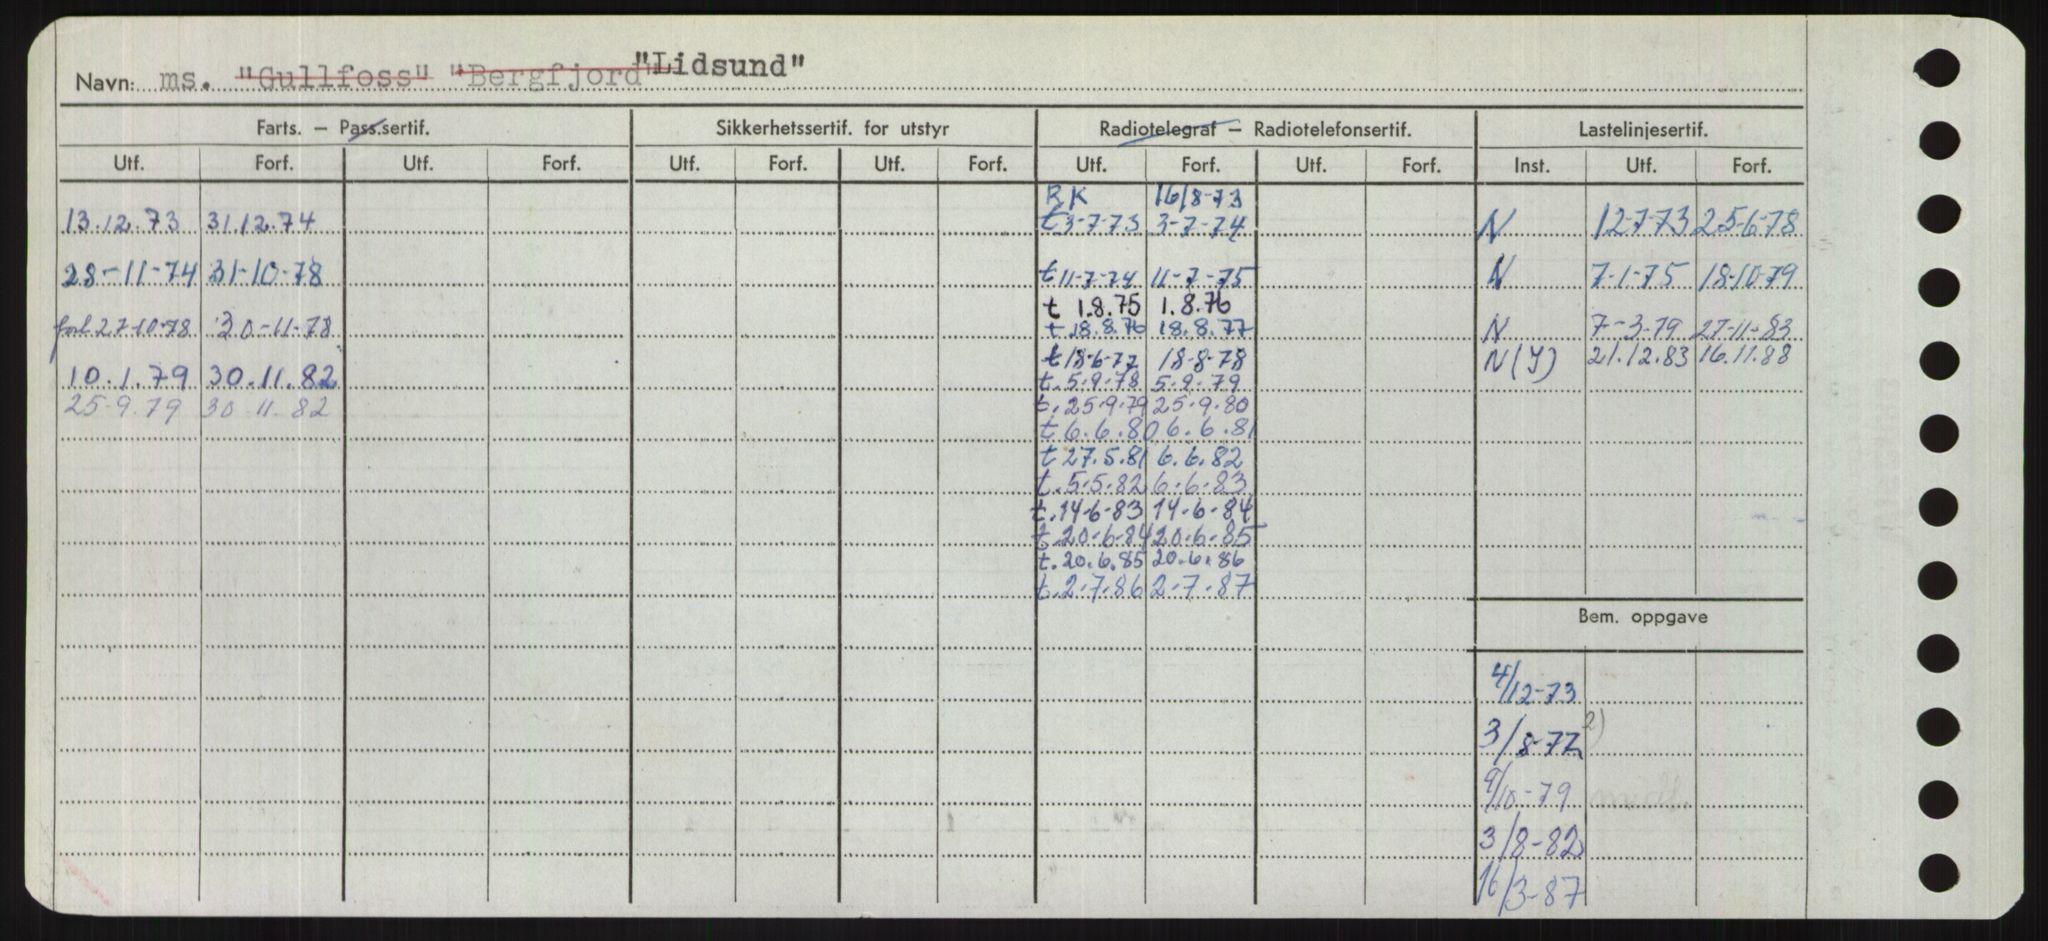 Navn: ms. "Gullfoss" "Bergfjord" "Lidsund"
Farts. – Pass.sertif. Sikkerhetssertif. for utstyr Radiotelegraf – Radiotelefonsertif. Lastelinjesertif.
Utf. Forf. Utf. Forf. Utf. Forf. Utf. Forf. Utf. Forf. Utf. Forf. Inst. Utf. Forf.
RK 16/8-73
13.12.73 31.12.74 t 3-7-73 3-7-74 N 12-7-73 25-6-78
28-11-74 31-10-78 t 11-7-74 11-7-75 N 7-1-75 18-10-79
t 1.8.75 1.8.76
forl 27-10-78 30-11-78 t 18.8.76 18.8.77 N 7-3-79 27-11-83
t 18-6-77 18-8-78 N (J) 21.12.83 16.11.88
10.1.79 30.11.82 t. 5-9-78 5-9-79
25-9-79 30-11-82 t. 25-9-79 25-9-80
t 6.6.80 6.6.81
t 27.5.81 6.6.82
t. 5-5-82 6-6-83
t. 14-6-83 14-6-84
t. 20-6-84 20-6-85
t. 20.6.85 20.6.86
t. 2-7-86 2-7-87
Bem. oppgave
4/12-73
3/8-77 2)
9/10-79
3/8-82
16/3-87